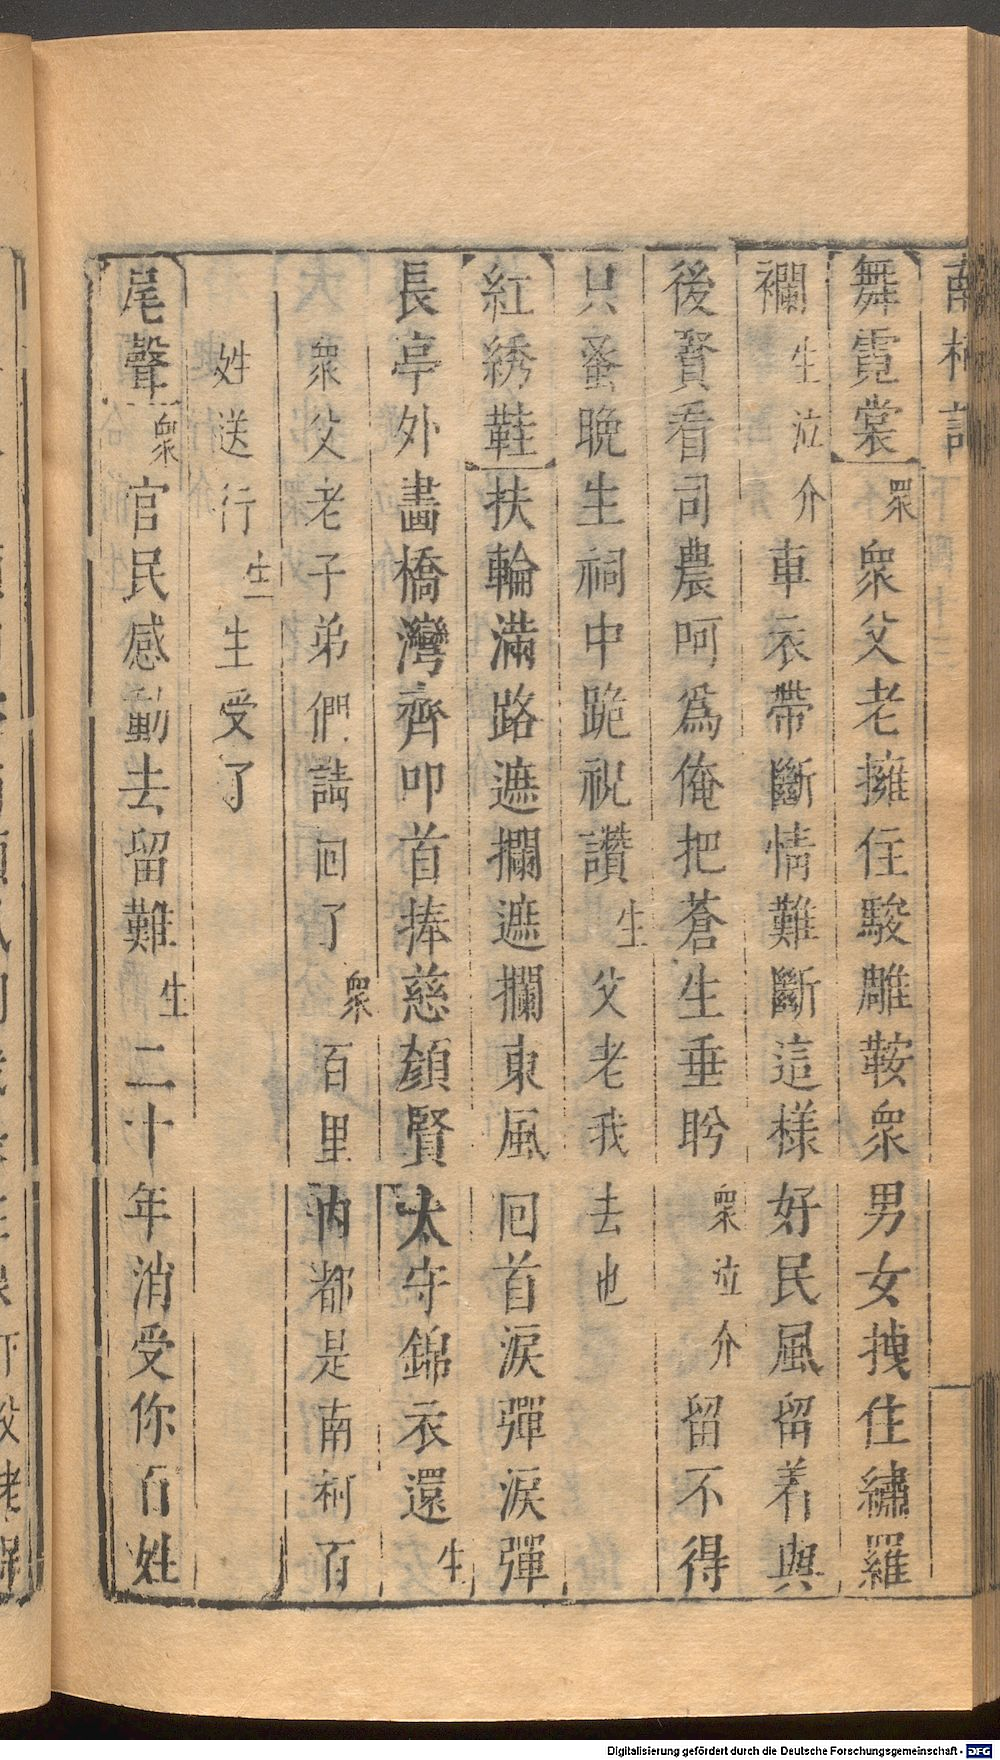 南柯記
舞霓裳 眾 衆父老擁住駿雕鞍衆男女拽住繡羅
襴 生泣介 車衣帶斷情難斷這樣好民風留着與
後賢看司農呵爲俺把蒼生垂盻 衆泣介 留不得
只蚤晚生祠中跪祝讚 生 父老我去也
紅綉鞋 扶輪滿路遮攔遮攔東風回首淚彈淚彈
長亭外畵橋灣齊叩首捧慈顏賢太守錦衣還 生
衆父老子弟們請回了 衆 百里內都是南柯百
姓送行 生 生受了
尾聲 衆 官民感動去留難 生 二十年消受你百姓
Digitalisierung gefördert durch die Deutsche Forschungsgemeinschaft - DFG